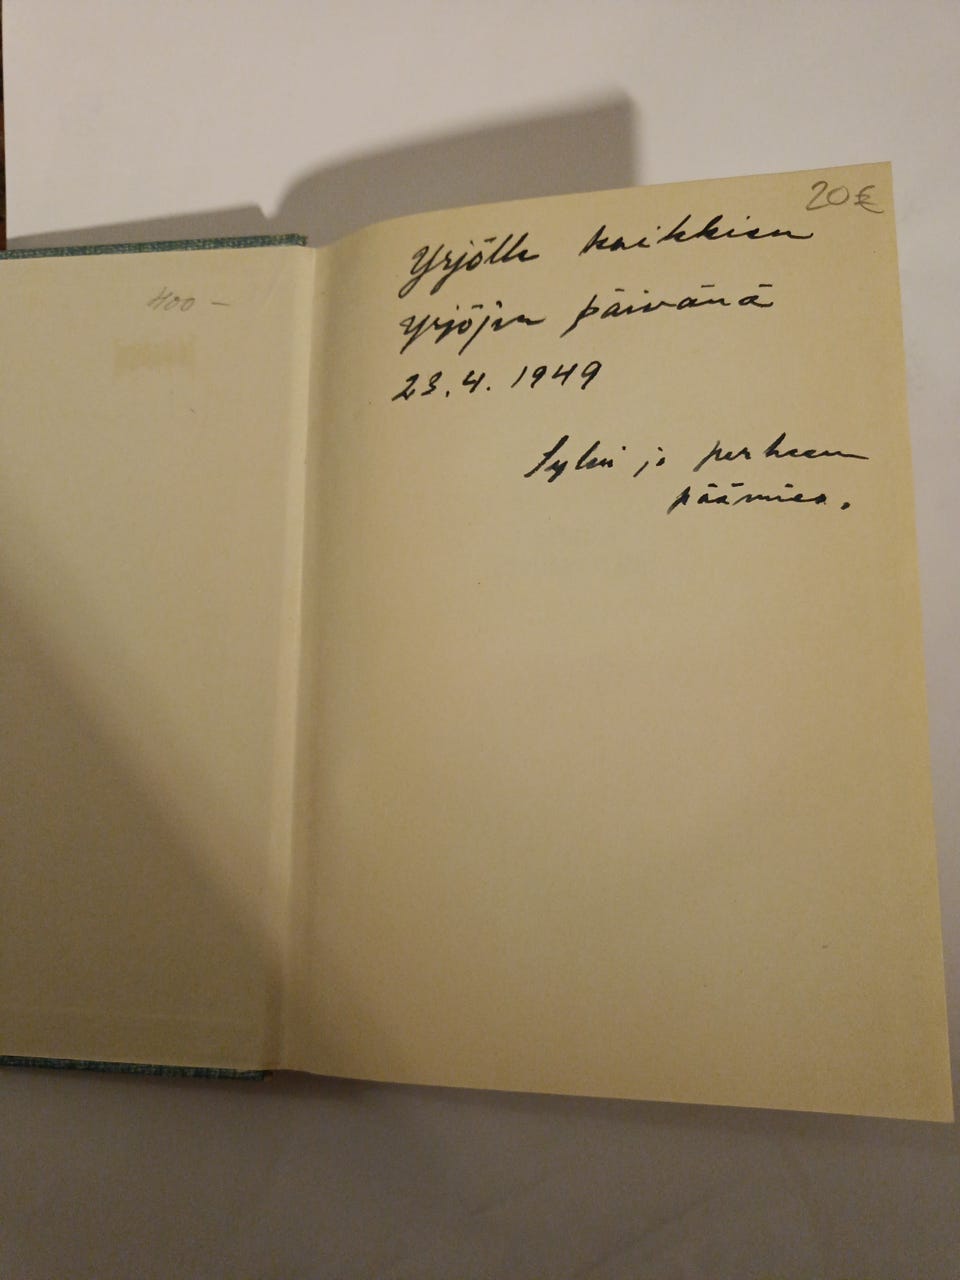 400 –
20 €
Yrjölle kaikkien
Yrjöjen päivänä
23.4.1949
Sylvi ja perheen
päämies.